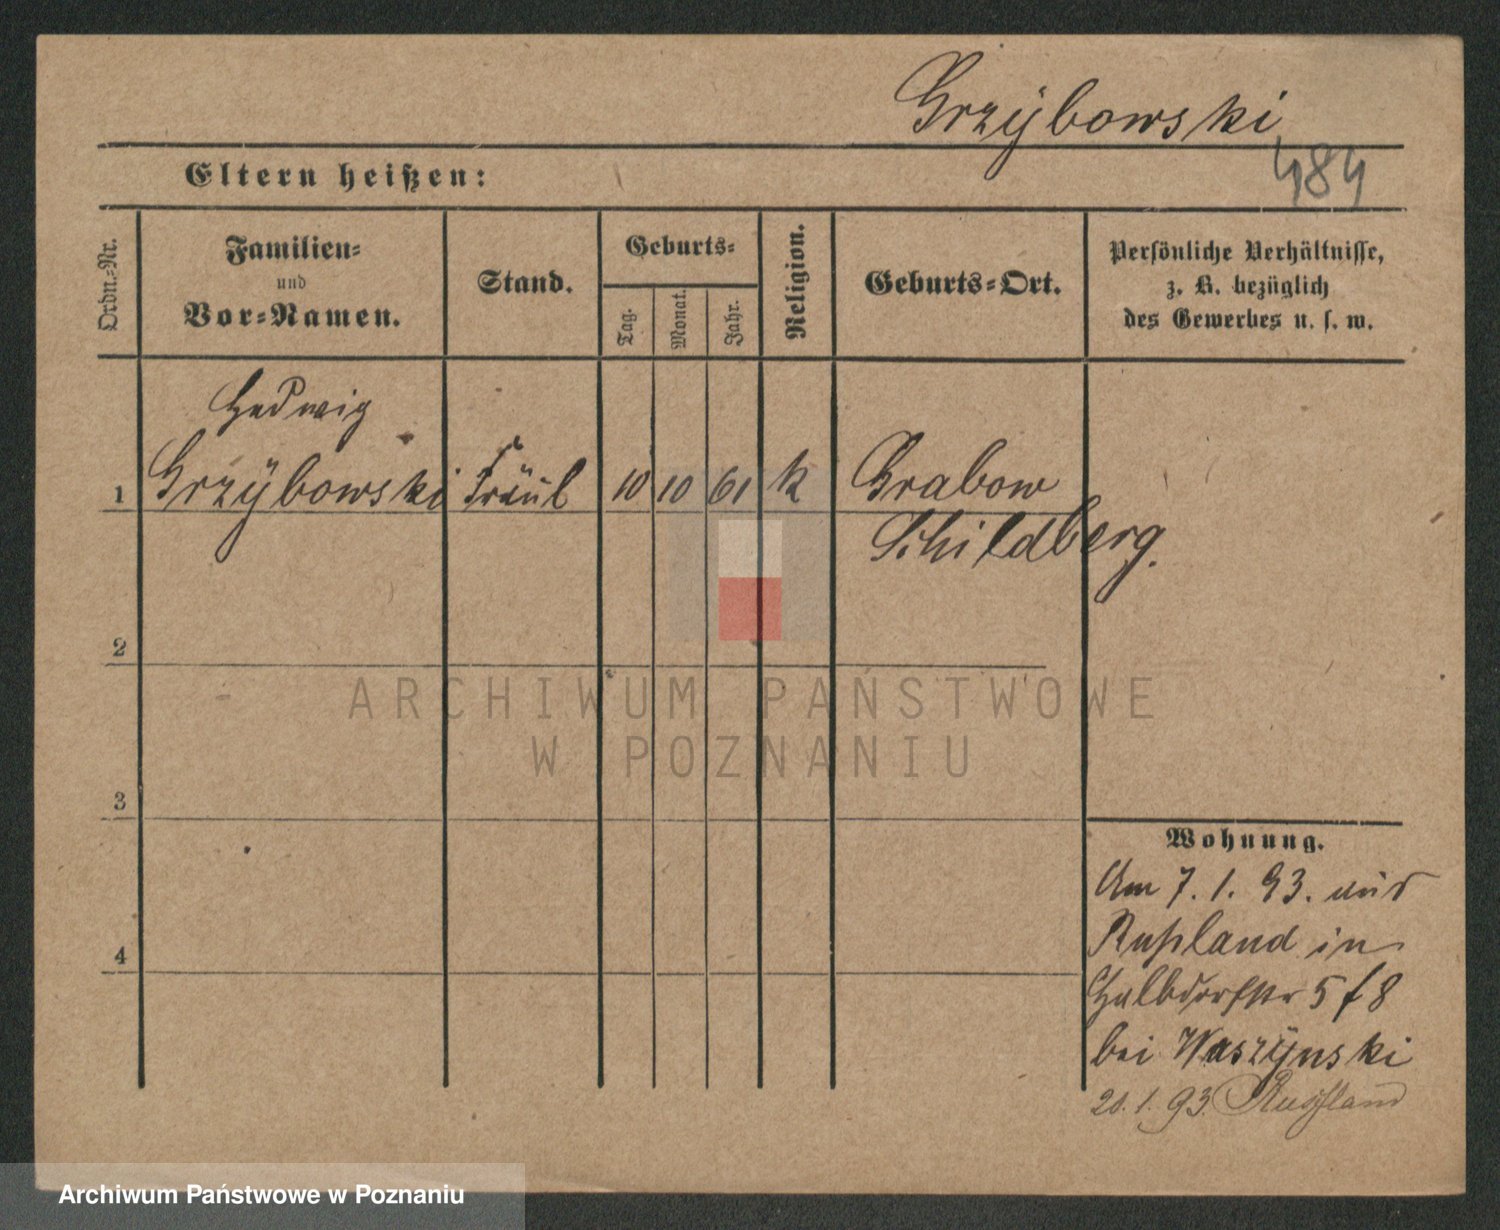 Grzÿbowski
484
Eltern heißen:
Ordn.-Nr.
Familien-
und
Vor-Namen.
Stand.
Geburts-
Tag.
Monat.
Jahr.
Religion.
Geburts-Ort.
Persönliche Verhältnisse,
z. B. bezüglich
des Gewerbes u. s. w.
Hedwig
1 Grzÿbowski Fräul 10 10 61 k Grabow
Schildberg.
2
3
4
Wohnung.
Am 7. 1. 93. aus
Rußland in
Halbdorfstr 5 f 8
bei Waszÿnski
20. 1. 93. Russland
ARCHIWUM PAŃSTWOWE
W POZNANIU
Archiwum Państwowe w Poznaniu